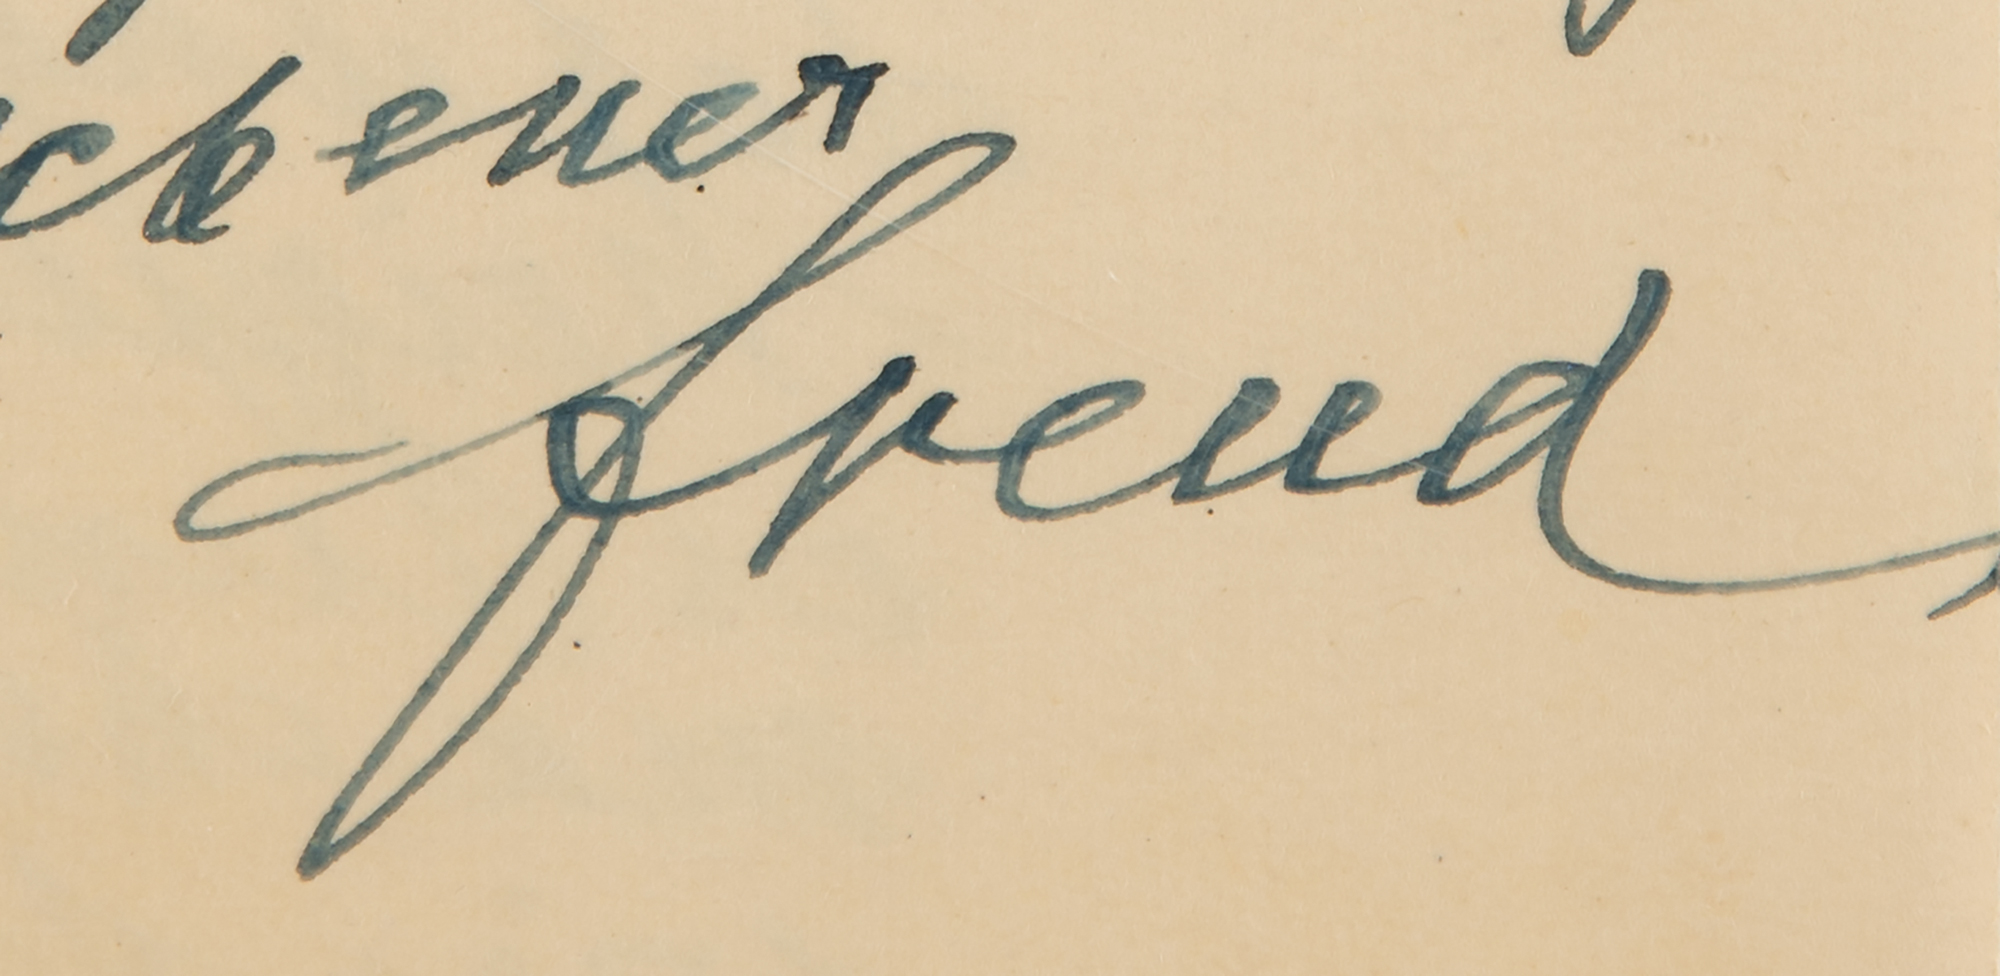 ebener
Freud